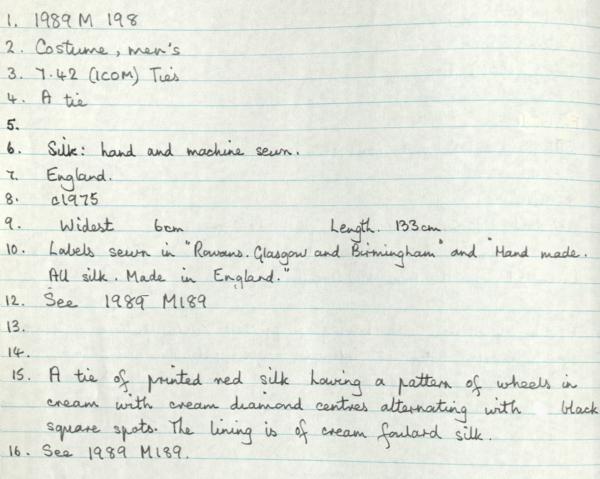 1. 1989 M 198
2. Costume, men's
3. 7.42 (ICOM) Ties
4. A tie
5.
6. Silk: hand and machine sewn.
7. England.
8. c1975
9. Widest 6cm Length. 133cm
10. Labels sewn in "Rowans. Glasgow and Birmingham" and "Hand made.
All silk. Made in England."
12. See 1989 M189
13.
14.
15. A tie of printed red silk having a pattern of wheels in
cream with cream diamond centres alternating with black
square spots. The lining is of cream foulard silk.
16. See 1989 M189.